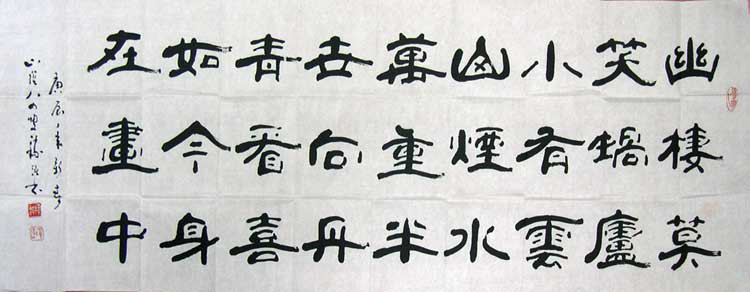 幽棲莫
笑蝸廬
小有雲
山煙水
萬重半
世向丹
青看喜
如今身
在畫中
庚辰年新春